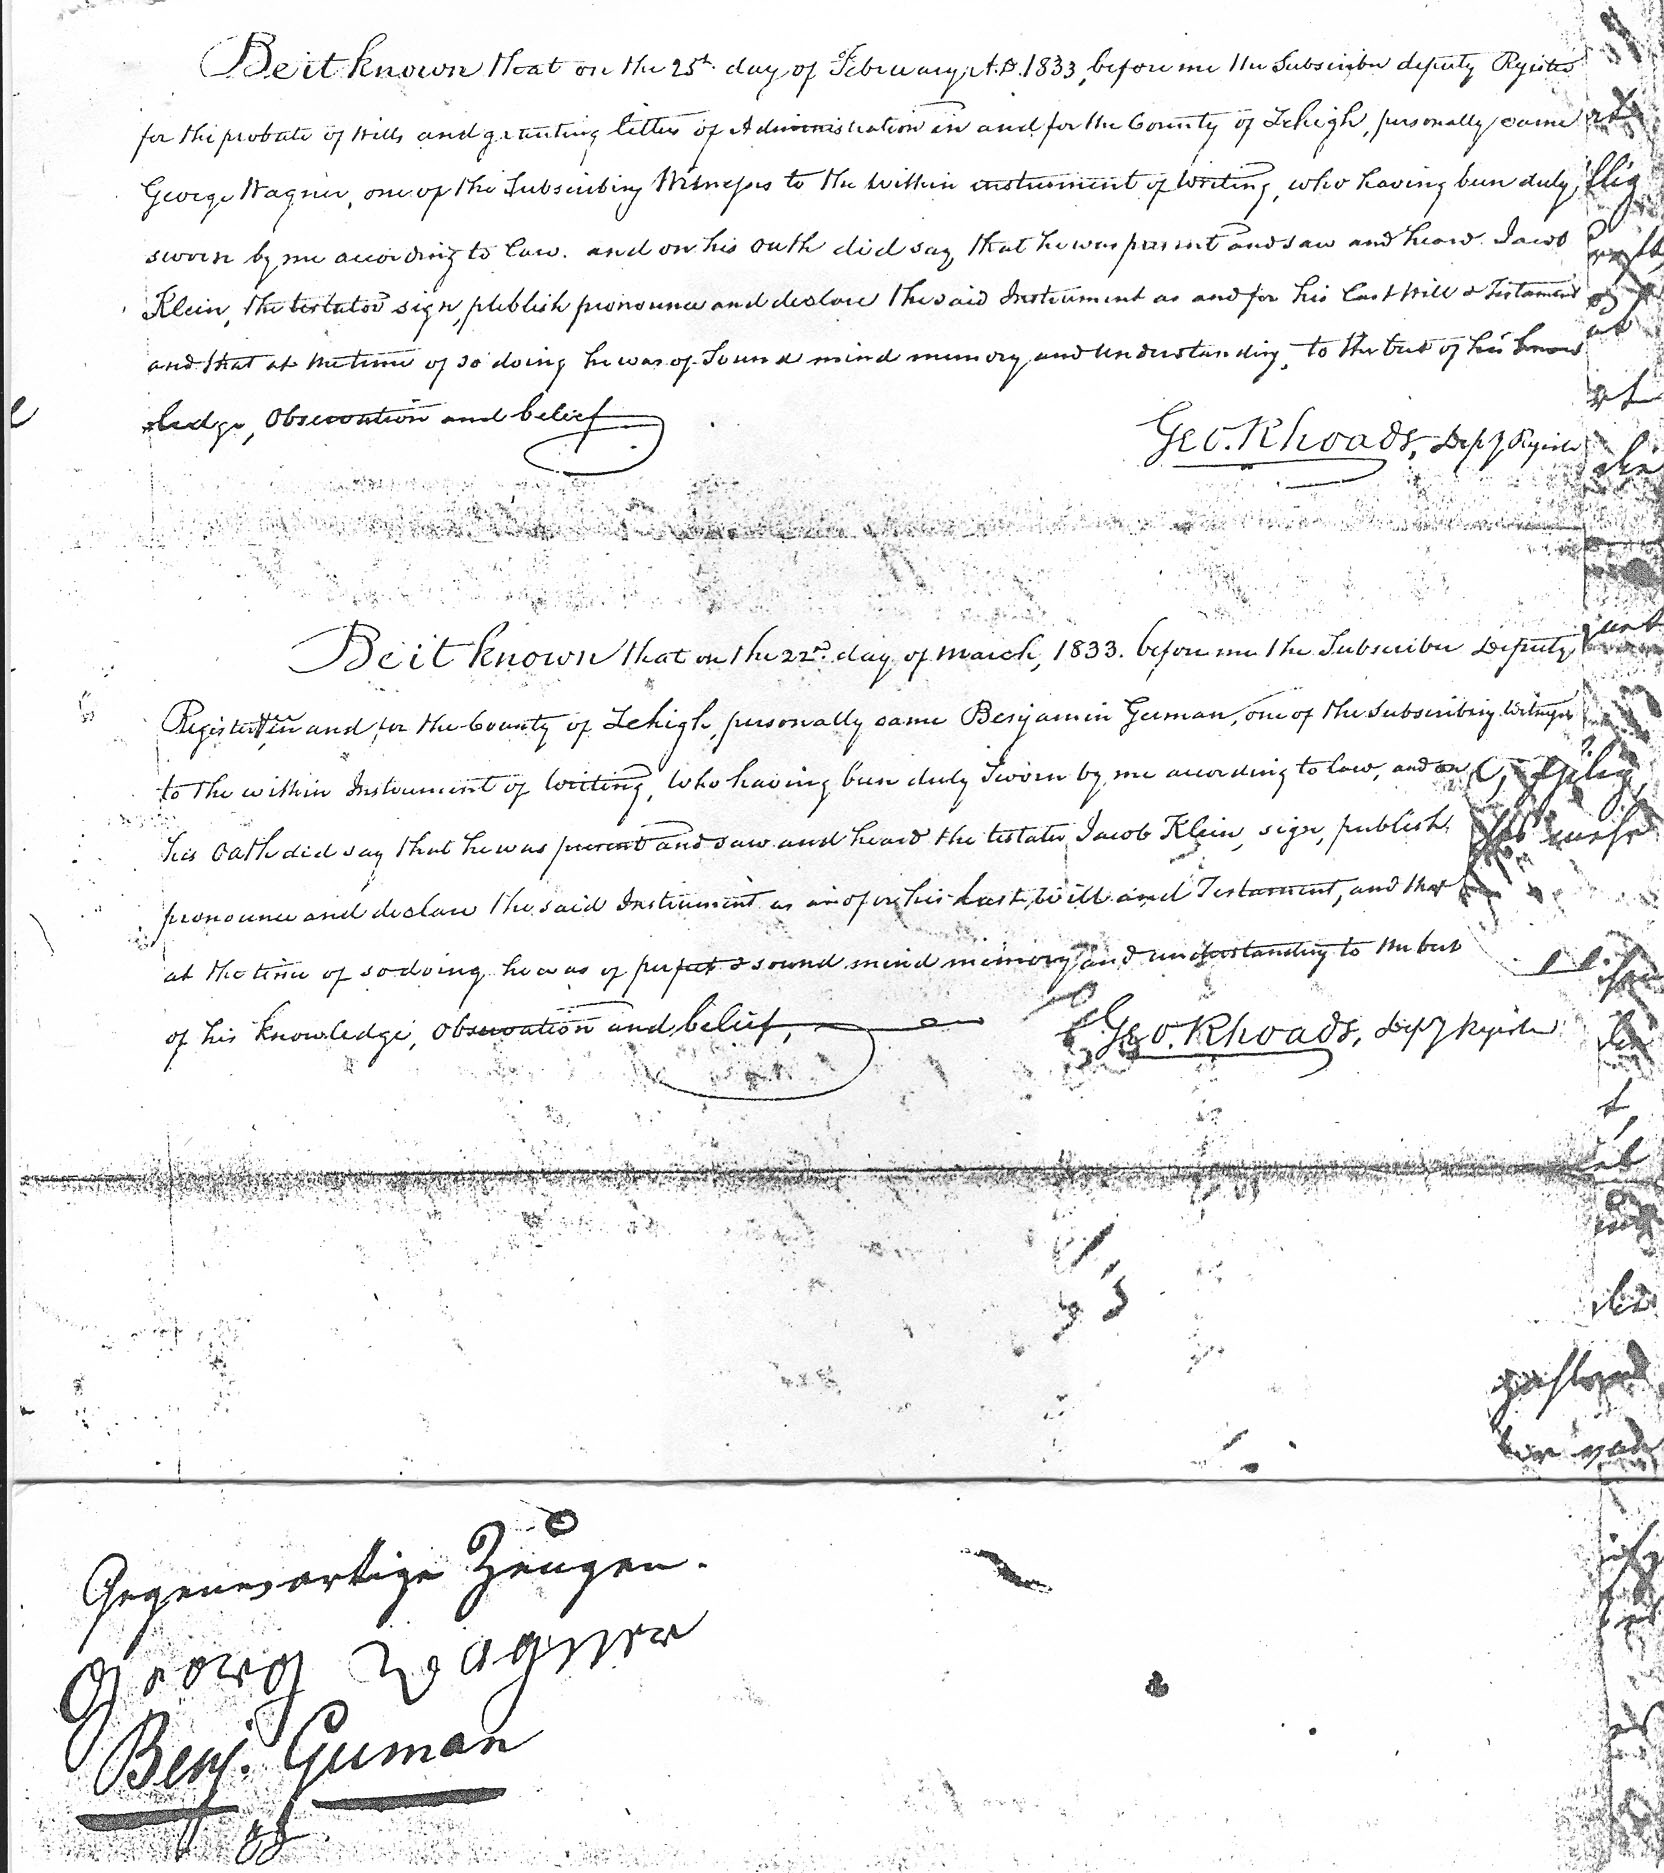 Be it known that on the 25th day of February, A.D. 1833, before me the Subscriber deputy Register
for the probate of Wills and granting letters of Administration in and for the County of Lehigh, personally came
George Wagner, one of the Subscribing Witnesses to the within instrument of Writing, who having been duly
sworn by me according to law. and on his oath did say that he was present and saw and heard Jacob
Klein, the testator sign, publish pronounce and declare the said Instrument as and for his Last Will & Testament
and that at the time of so doing he was of Sound mind memory and understanding, to the best of his know
ledge, Observation and belief
Geo. Rhoads, Depy Register
Be it known that on the 22nd day of March, 1833. before me the Subscriber Deputy
Register in and for the County of Lehigh, personally came Benjamin German, one of the Subscribing Witnesses
to the within Instrument of Writing, Who having been duly Sworn by me according to law, and on
his Oath did say that he was present and saw and heard the testator Jacob Klein, sign, publish,
pronounce and declare the said Instrument as and for his Last Will and Testament, and that
at the time of so doing he was of perfect & sound mind memory and understanding to the best
of his knowledge, observation and belief,
Geo. Rhoads, Depy Register
Gegenwartige Zeugen.
Georg Wagner
Benj. German